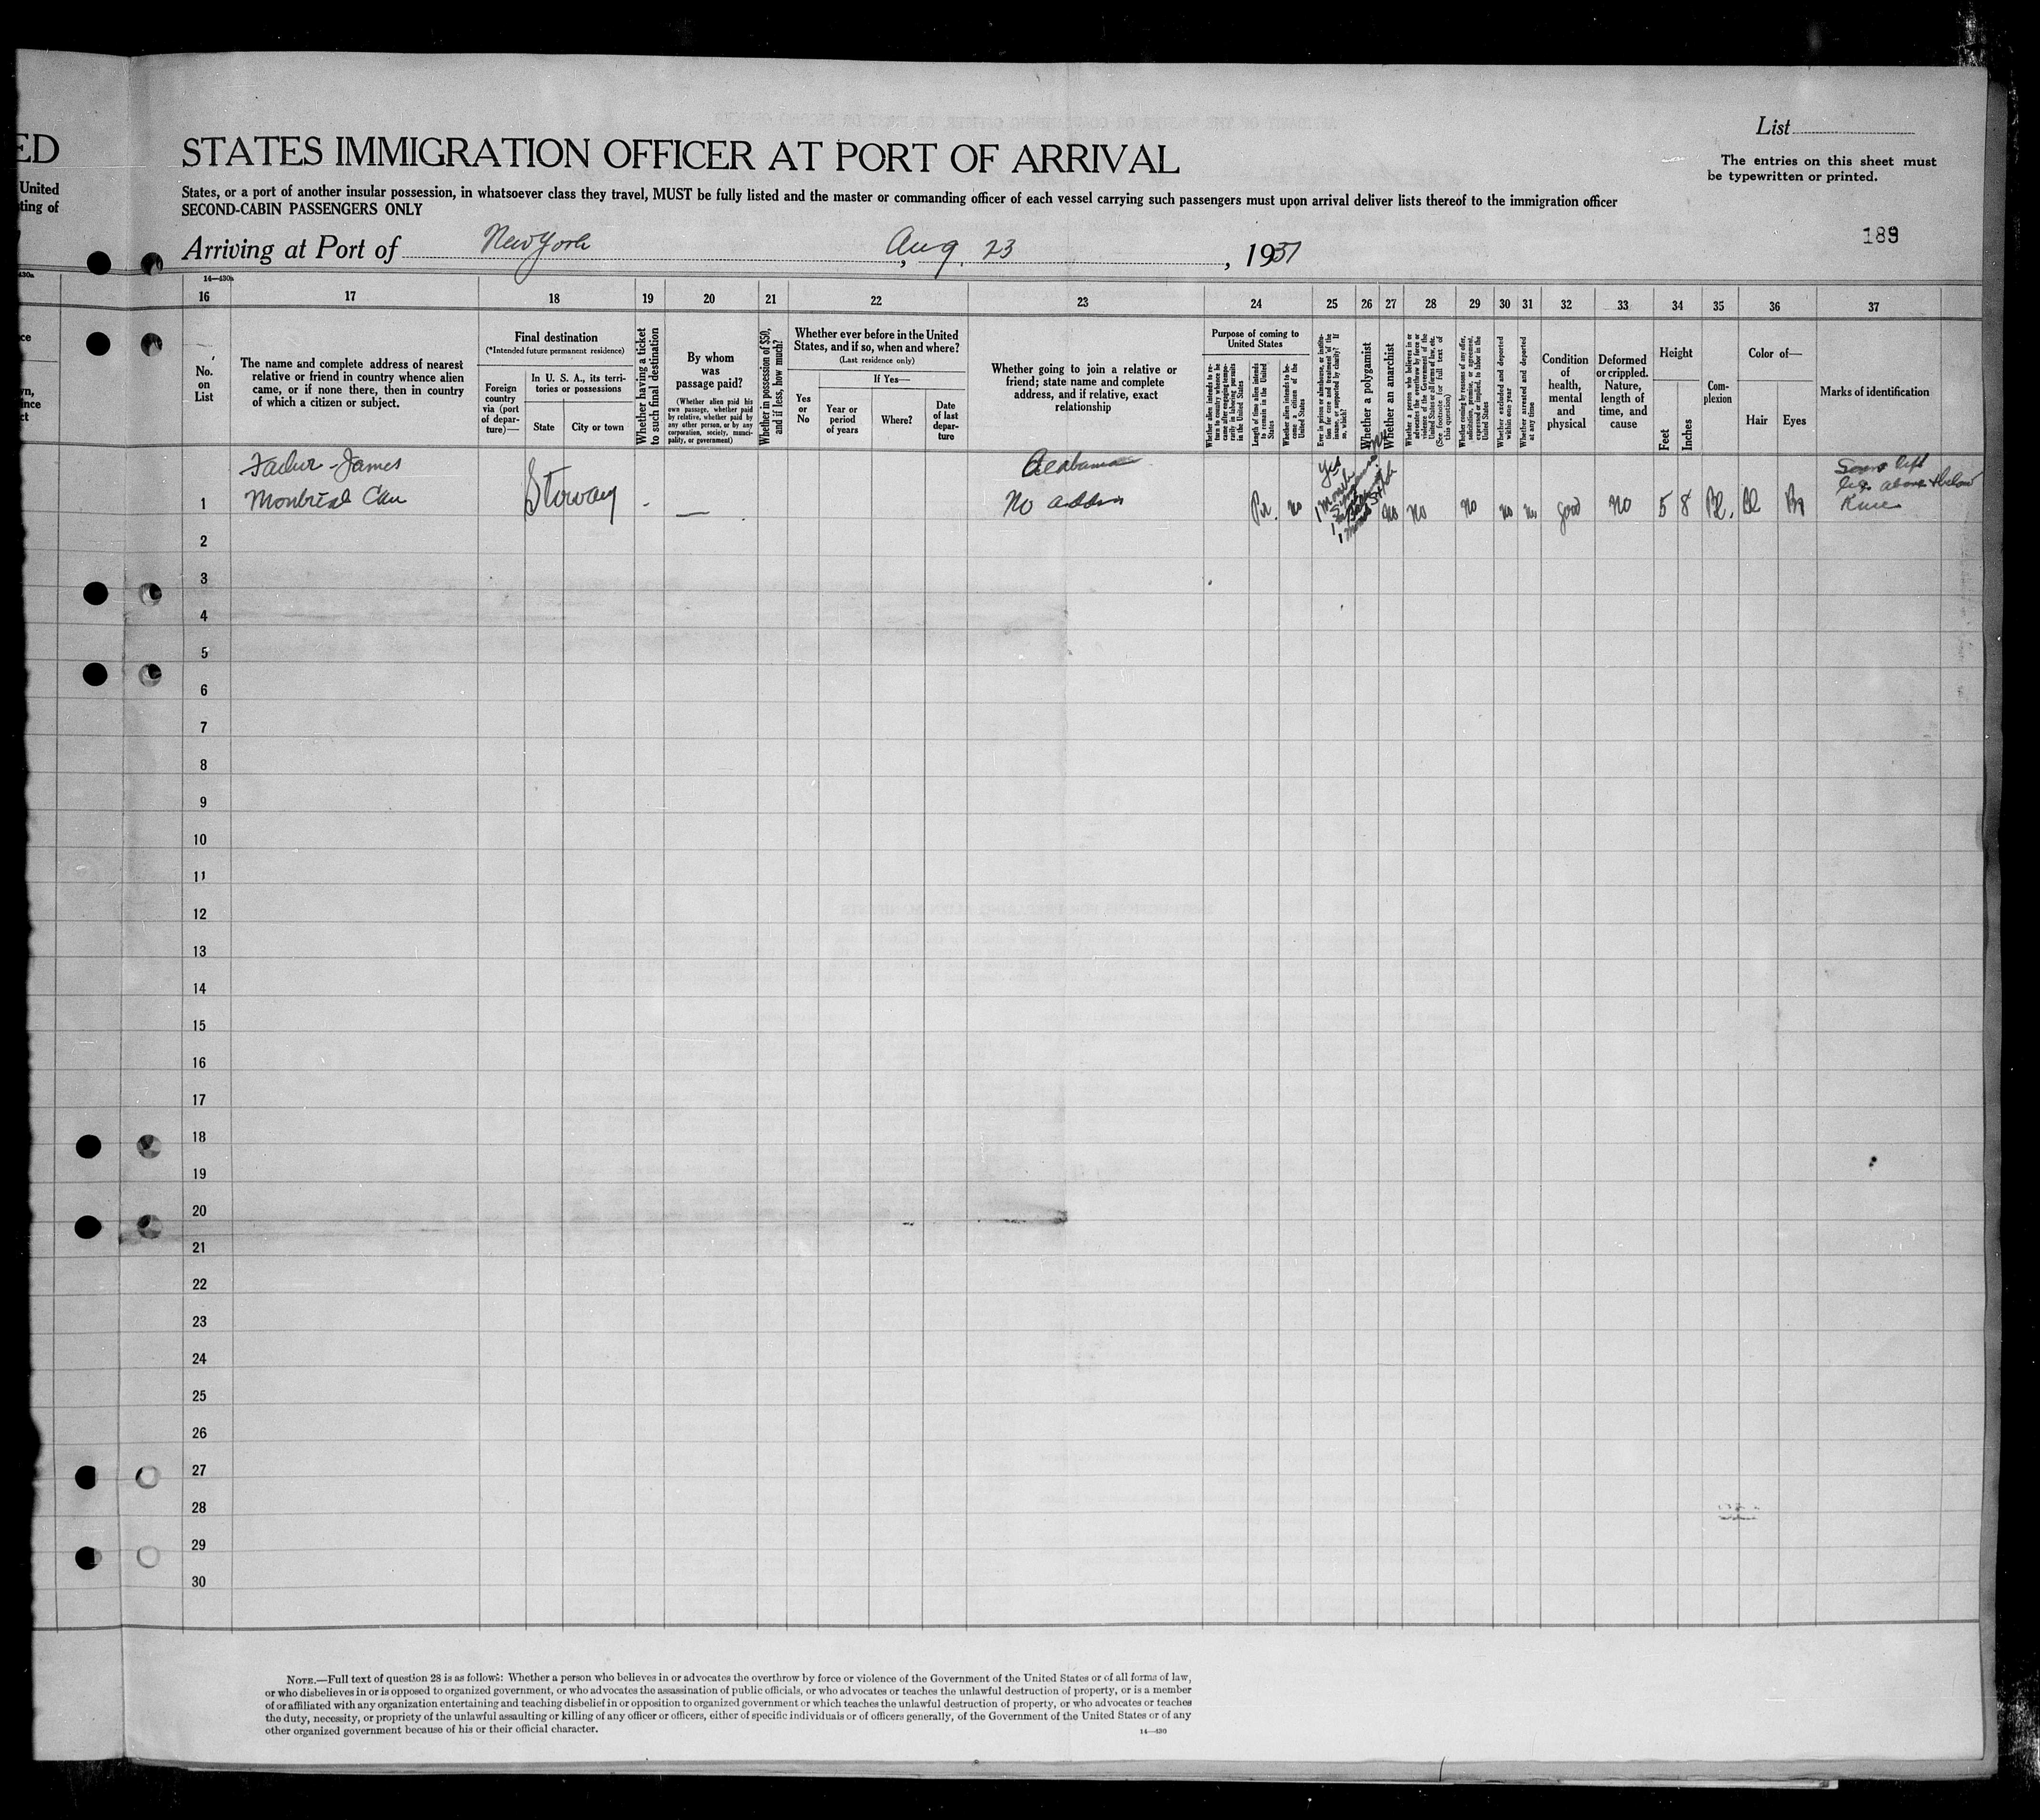 ED
United
ting of
STATES IMMIGRATION OFFICER AT PORT OF ARRIVAL
List
The entries on this sheet must
be typewritten or printed.
States, or a port of another insular possession, in whatsoever class they travel, MUST be fully listed and the master or commanding officer of each vessel carrying such passengers must upon arrival deliver lists thereof to the immigration officer
SECOND-CABIN PASSENGERS ONLY
189
Arriving at Port of New York, Aug. 23, 1937
14—430b
16 17 18 19 20 21 22 23 24 25 26 27 28 29 30 31 32 33 34 35 36 37
No.
on
List
The name and complete address of nearest
relative or friend in country whence alien
came, or if none there, then in country
of which a citizen or subject.
Final destination
(*Intended future permanent residence)
Foreign
country
via (port
of depar-
ture)—
In U. S. A., its terri-
tories or possessions
State
City or town
Whether having a ticket
to such final destination
By whom
was
passage paid?
(Whether alien paid his
own passage, whether paid
by relative, whether paid by
any other person, or by any
corporation, society, munici-
pality, or government)
Whether in possession of $50,
and if less, how much?
Whether ever before in the United
States, and if so, when and where?
(Last residence only)
Yes
or
No
If Yes—
Year or
period
of years
Where?
Date
of last
depar-
ture
Whether going to join a relative or
friend; state name and complete
address, and if relative, exact
relationship
Purpose of coming to
United States
Whether alien intends to re-
turn to country whence he
came after engaging tempo-
rarily in laboring pursuits
in the United States
Length of time alien intends
to remain in the United
States
Whether alien intends to be-
come a citizen of the
United States
Ever in prison or almshouse, or institu-
tion for care and treatment of the
insane, or supported by charity? If
so, which?
Whether a polygamist
Whether an anarchist
Whether a person who believes in or
advocates the overthrow by force or
violence of the Government of the
United States or all forms of law, etc.
(See footnote for full text of
this question)
Whether coming by reasons of any offer,
solicitation, promise, or agreement,
expressed or implied, to labor in the
United States
Whether excluded and deported
within one year
Whether arrested and deported
at any time
Condition
of
health,
mental
and
physical
Deformed
or crippled.
Nature,
length of
time, and
cause
Height
Feet
Inches
Com-
plexion
Color of—
Hair
Eyes
Marks of identification
Father - James
Montreal Can
Stoway
Alabama
No address
Yes
1 Month
Per. no
No No No No No good no 5 8 Bl. Bl Br
left
leg above & below
Knee
1
2
3
4
5
6
7
8
9
10
11
12
13
14
15
16
17
18
19
20
21
22
23
24
25
26
27
28
29
30
NOTE.—Full text of question 28 is as follows: Whether a person who believes in or advocates the overthrow by force or violence of the Government of the United States or of all forms of law,
or who disbelieves in or is opposed to organized government, or who advocates the assassination of public officials, or who advocates or teaches the unlawful destruction of property, or is a member
of or affiliated with any organization entertaining and teaching disbelief in or opposition to organized government or which teaches the unlawful destruction of property, or who advocates or teaches
the duty, necessity, or propriety of the unlawful assaulting or killing of any officer or officers, either of specific individuals or of officers generally, of the Government of the United States or of any
other organized government because of his or their official character.
14—430